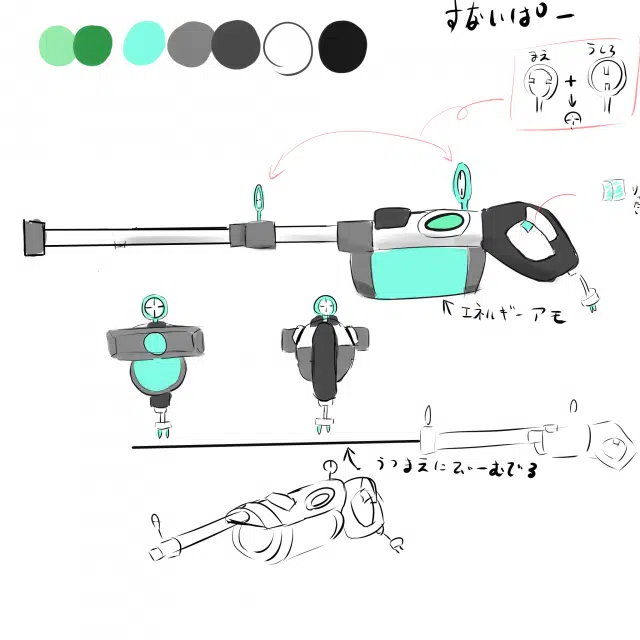 すないぱー
まえ
うしろ
エネルギーアモ
うつまえにびーむでる